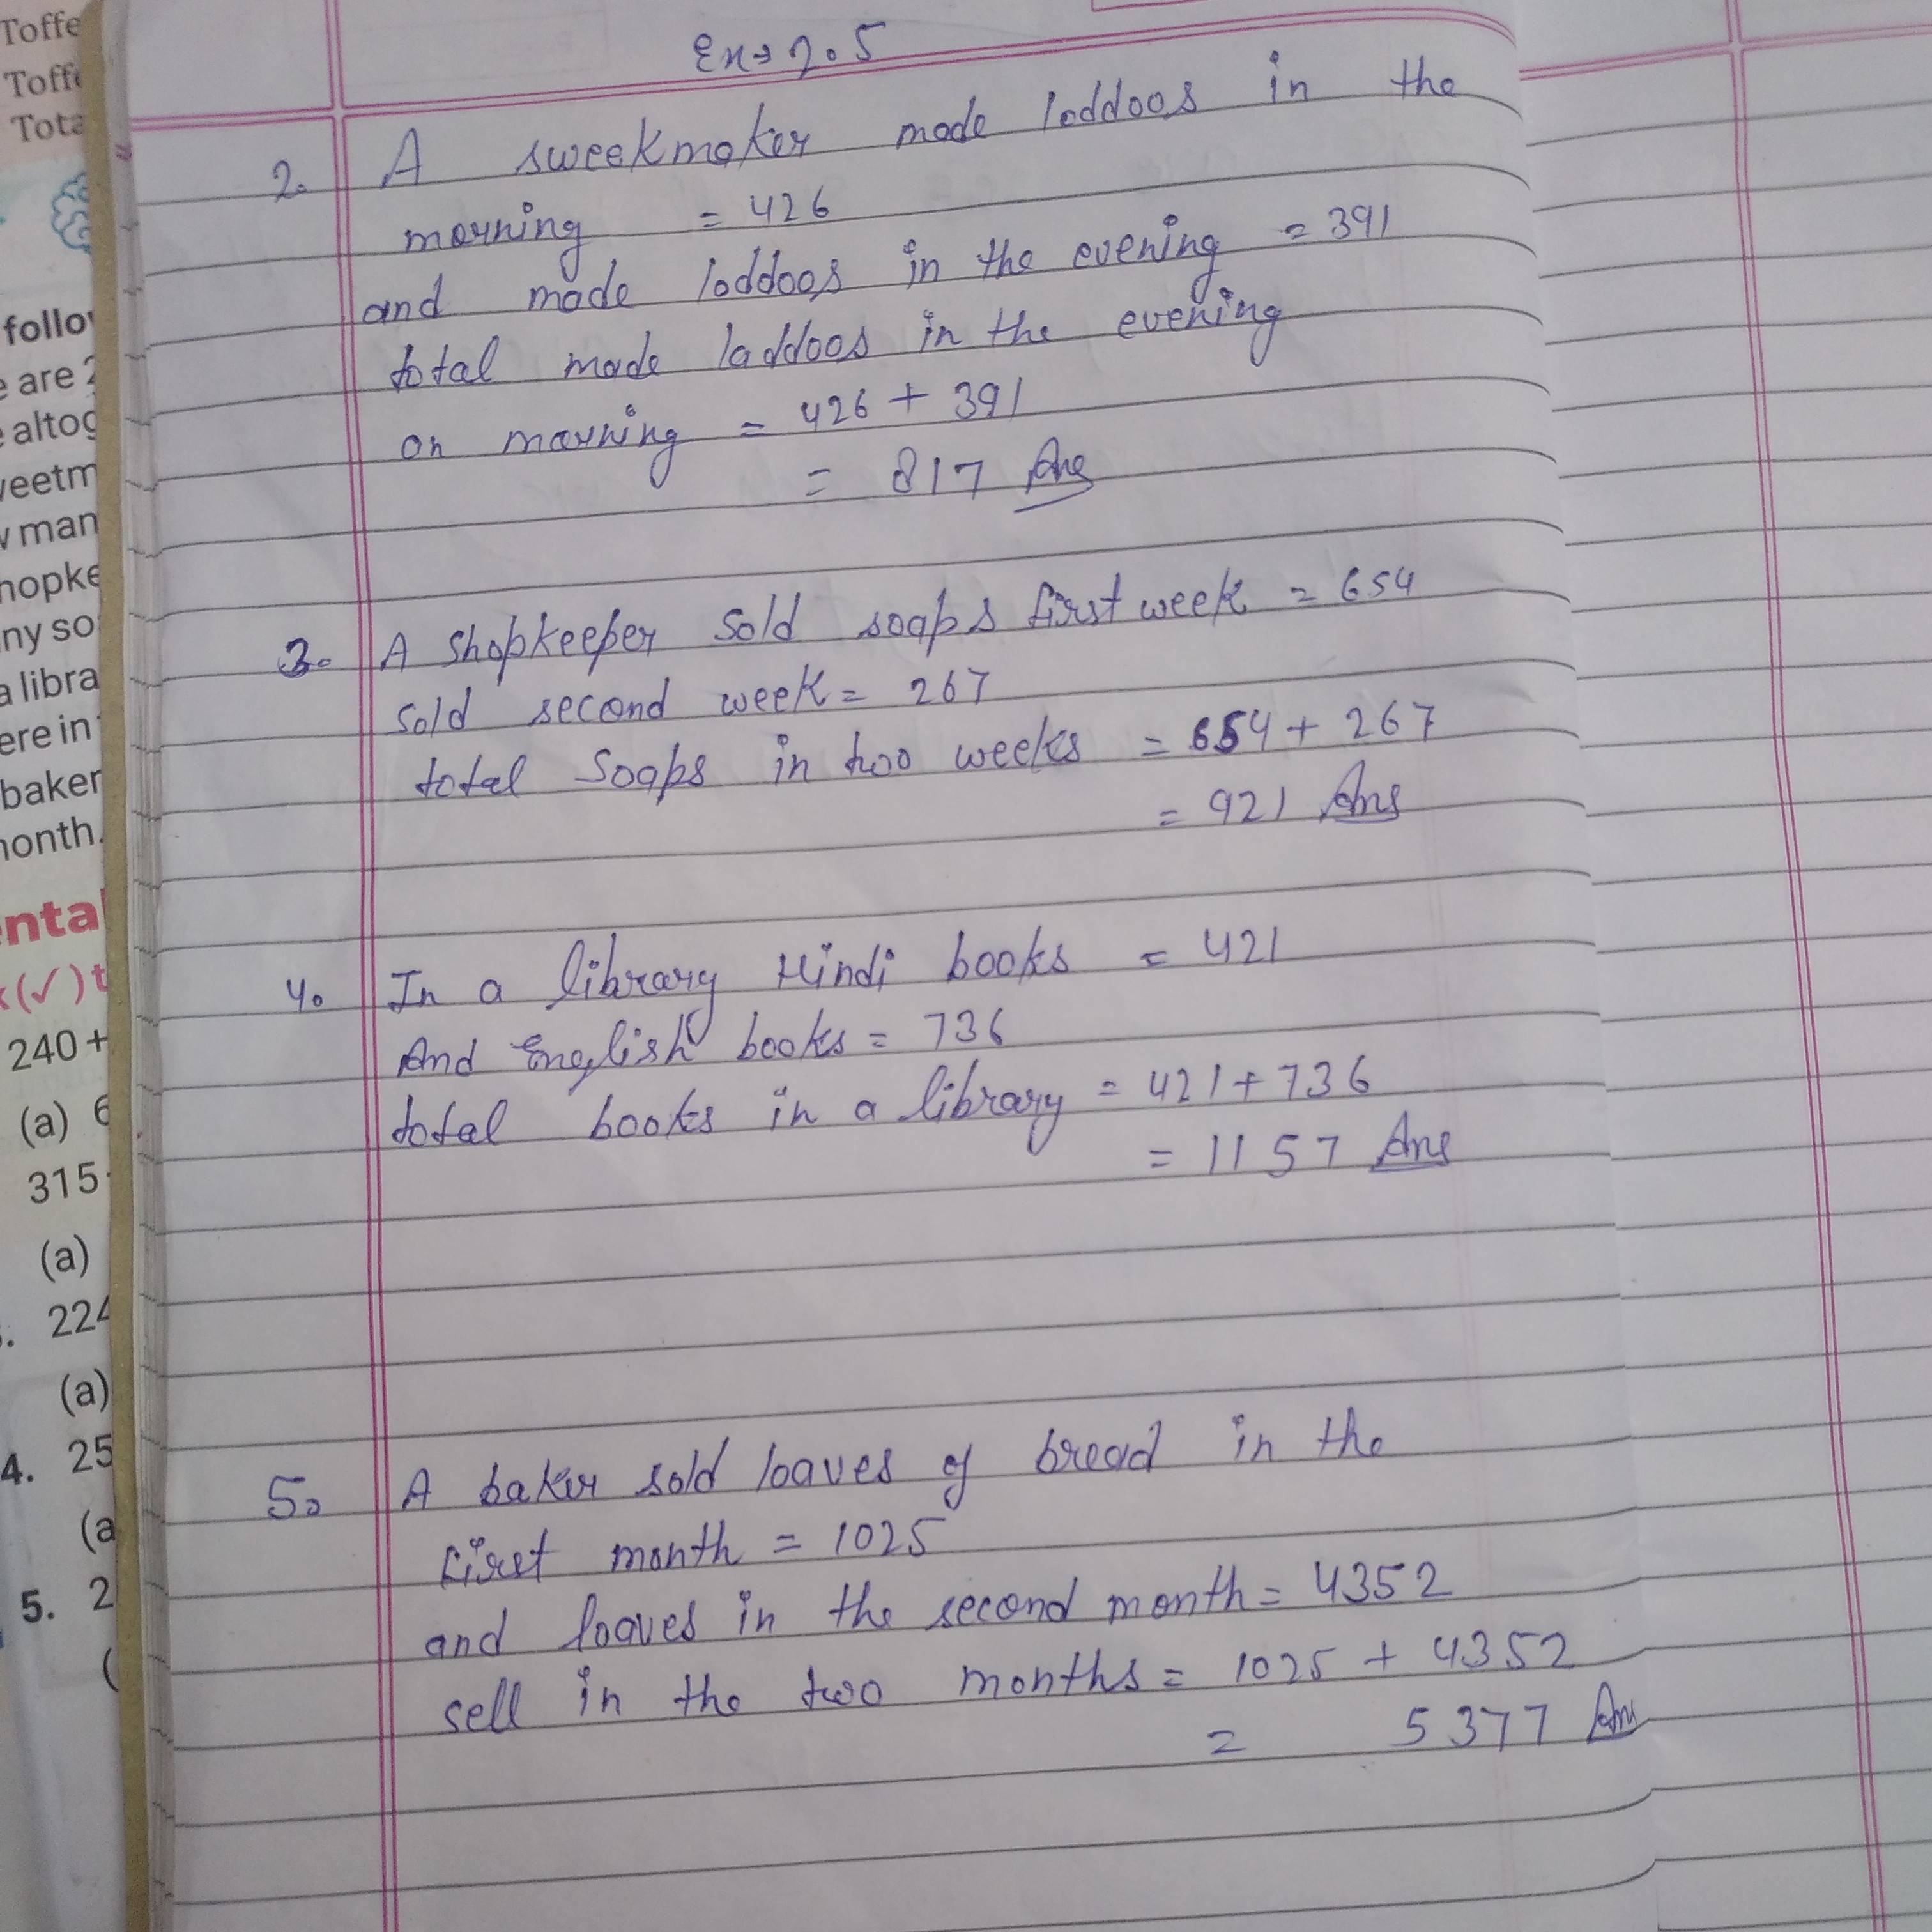 Toffe
Toffe
Tota
follo
e are 2
e altog
weetm
w man
hopke
ny so
a libra
ere in
baker
month.
ental
k (✓) t
240 +
(a) 6
315
(a)
224
(a)
4. 25
(a
5. 2
(
Ex → 2.5
2. A sweekmaker made loddoos in the
morning = 426
and made loddoos in the evening = 391
total made laddoos in the evening
on morning = 426 + 391
= 817 Ans
3. A shopkeeper sold soaps first week = 654
sold second week = 267
total soaps in two weeks = 654 + 267
= 921 Ans
4. In a library Hindi books = 421
And English books = 736
total books in a library = 421 + 736
= 1157 Ans
5. A baker sold loaves of bread in the
first month = 1025
and loaves in the second month = 4352
sell in the two months = 1025 + 4352
= 5377 Ans